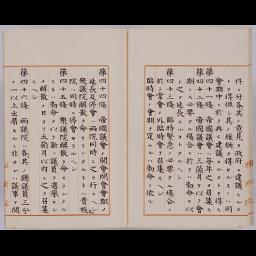 件ニ付各其ノ意見ヲ政府ニ建議スルコ
トヲ得但シ其ノ採納ヲ得サルモノハ同
會期中ニ於テ再ヒ建議スルコトヲ得ス
第四十一條 帝國議會ハ毎年之ヲ召集ス
第四十二條 帝國議會ハ三箇月ヲ以テ會
期トス必要アル場合ニ於テハ勅命ヲ以
テ之ヲ延長スルコトアルヘシ
第四十三條 臨時緊急ノ必要アル場合ニ
於テ常會ノ外臨時會ヲ召集スヘシ
臨時會ノ會期ヲ定ムルハ勅命ニ依ル
第四十四條 帝國議會ノ開會閉會會期ノ
延長及停會ハ兩院同時ニ之ヲ行フヘシ
衆議院解散ヲ命セラレタルトキハ貴族
院ハ同時ニ停會セラルヘシ
第四十五條 衆議院解散ヲ命セラレタル
トキハ勅命ヲ以テ新ニ議員ヲ選擧セシ
メ解散ノ日ヨリ五箇月以内ニ之ヲ召集
スヘシ
第四十六條 兩議院ハ各其ノ總議員三分
ノ一以上出席スルニ非サレハ議事ヲ開